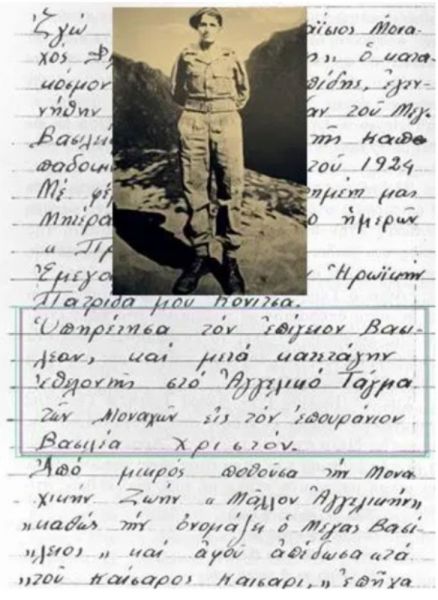 Ἐγώ ... άΐσιος Μονα-
χός Φι ... ης", ὁ κατα-
κόσμον ... πίδης, ἐγεν-
νήθην ... αν τοῦ Μεγ.
Βασιλεί ... τῆς Καππα
παδοκι ... τοῦ 1924
Μέ φε ... ημένη μας
Μητέρα ... ὁ ἡμερῶν
Ἐμεγα ... ν Ἡρωϊκήν
Πατρίδα μου Κόνιτσα.
Ὑπηρέτησα τόν ἐπίγειον Βασι-
λέαν, καί μετά κατετάγην
ἐθελοντής στό Ἀγγελικό Τάγμα
τῶν Μοναχῶν εἰς τόν ἐπουράνιον
Βασιλέα Χριστόν.
Ἀπό μικρός ποθοῦσα τήν Μονα-
χικήν Ζωήν "Μᾶλλον Ἀγγελικήν"
"καθώς τήν ὀνομάζει ὁ Μέγας Βασί-
"λειος" καί ἀφοῦ ἀπέδωσα "τά
"τοῦ Καίσαρος Καίσαρι," ἐπῆγα